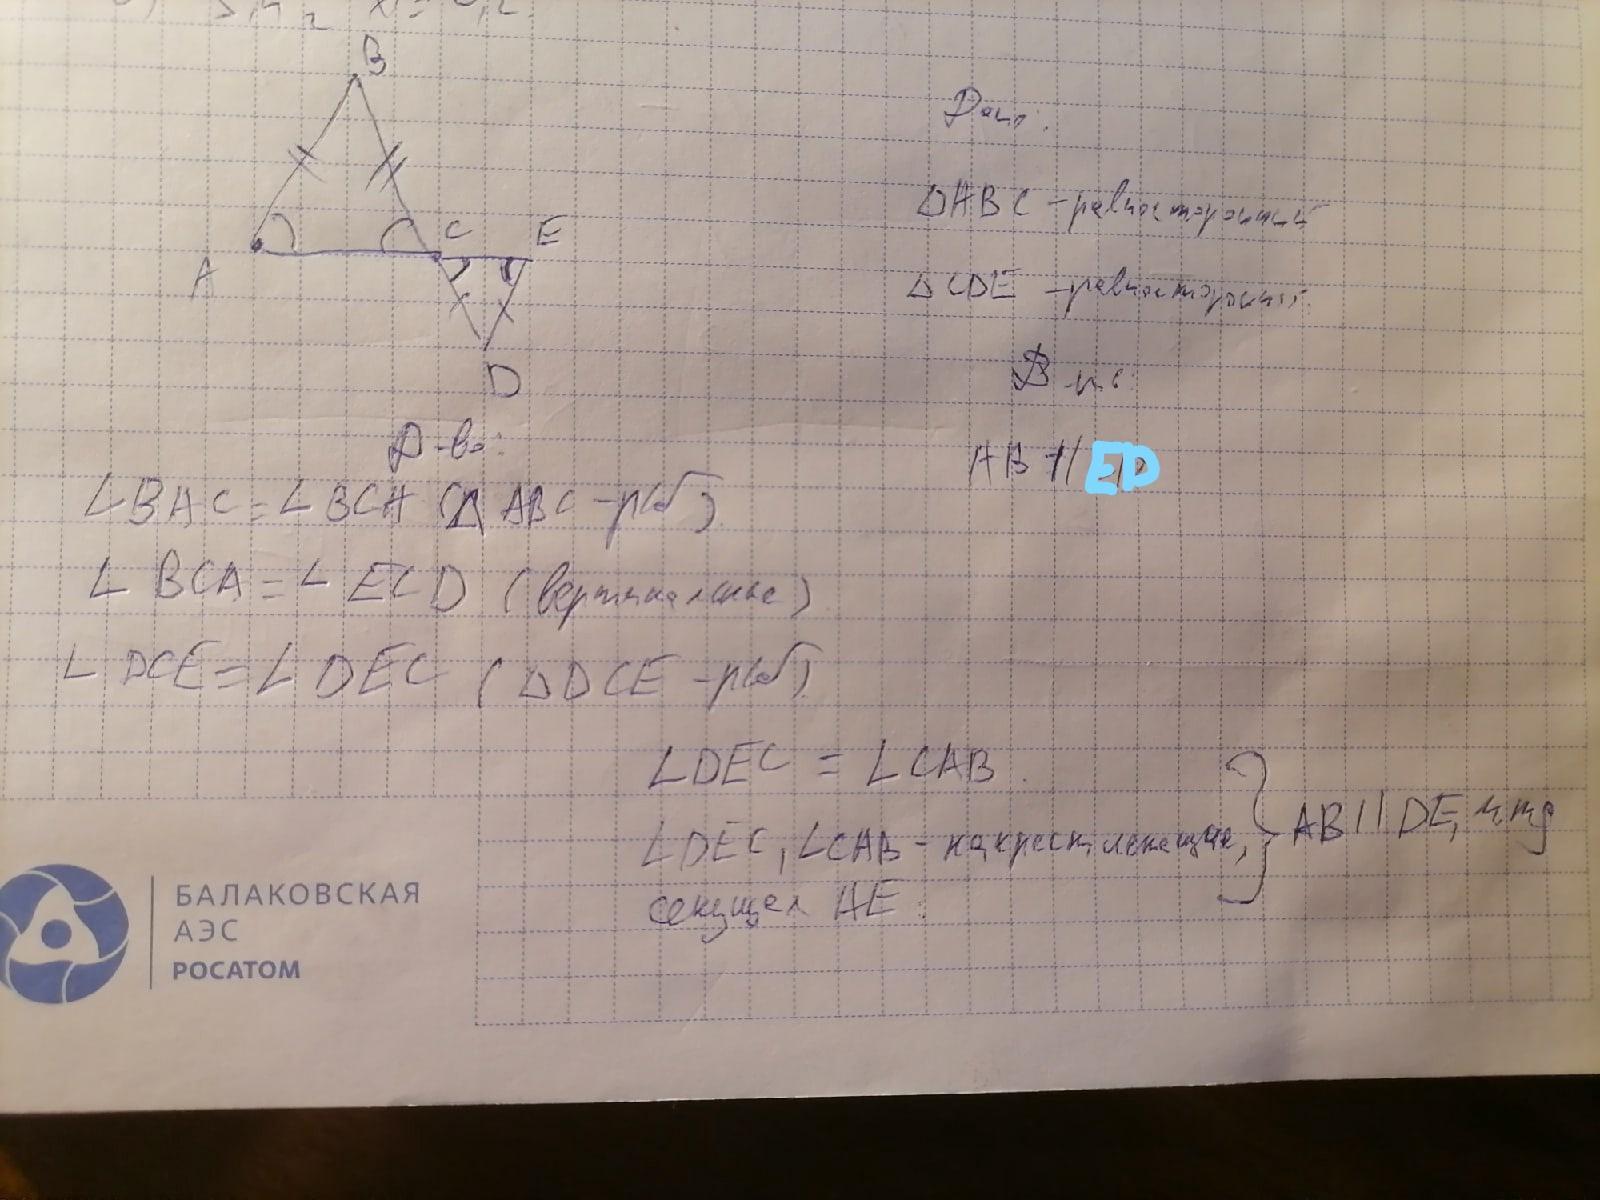 B
A
C
E
D
Дано:
ΔABC – равносторонний
ΔCDE – равносторонний
AB || ED
Д-во:
∠BAC = ∠BCA (ΔABC – р/б)
∠BCA = ∠ECD (вертикальные)
∠DCE = ∠DEC (ΔDCE – р/б)
∠DEC = ∠CAB.
∠DEC, ∠CAB – накрест лежащие,
секущая AE
AB || DE, чтд
БАЛАКОВСКАЯ
АЭС
РОСАТОМ